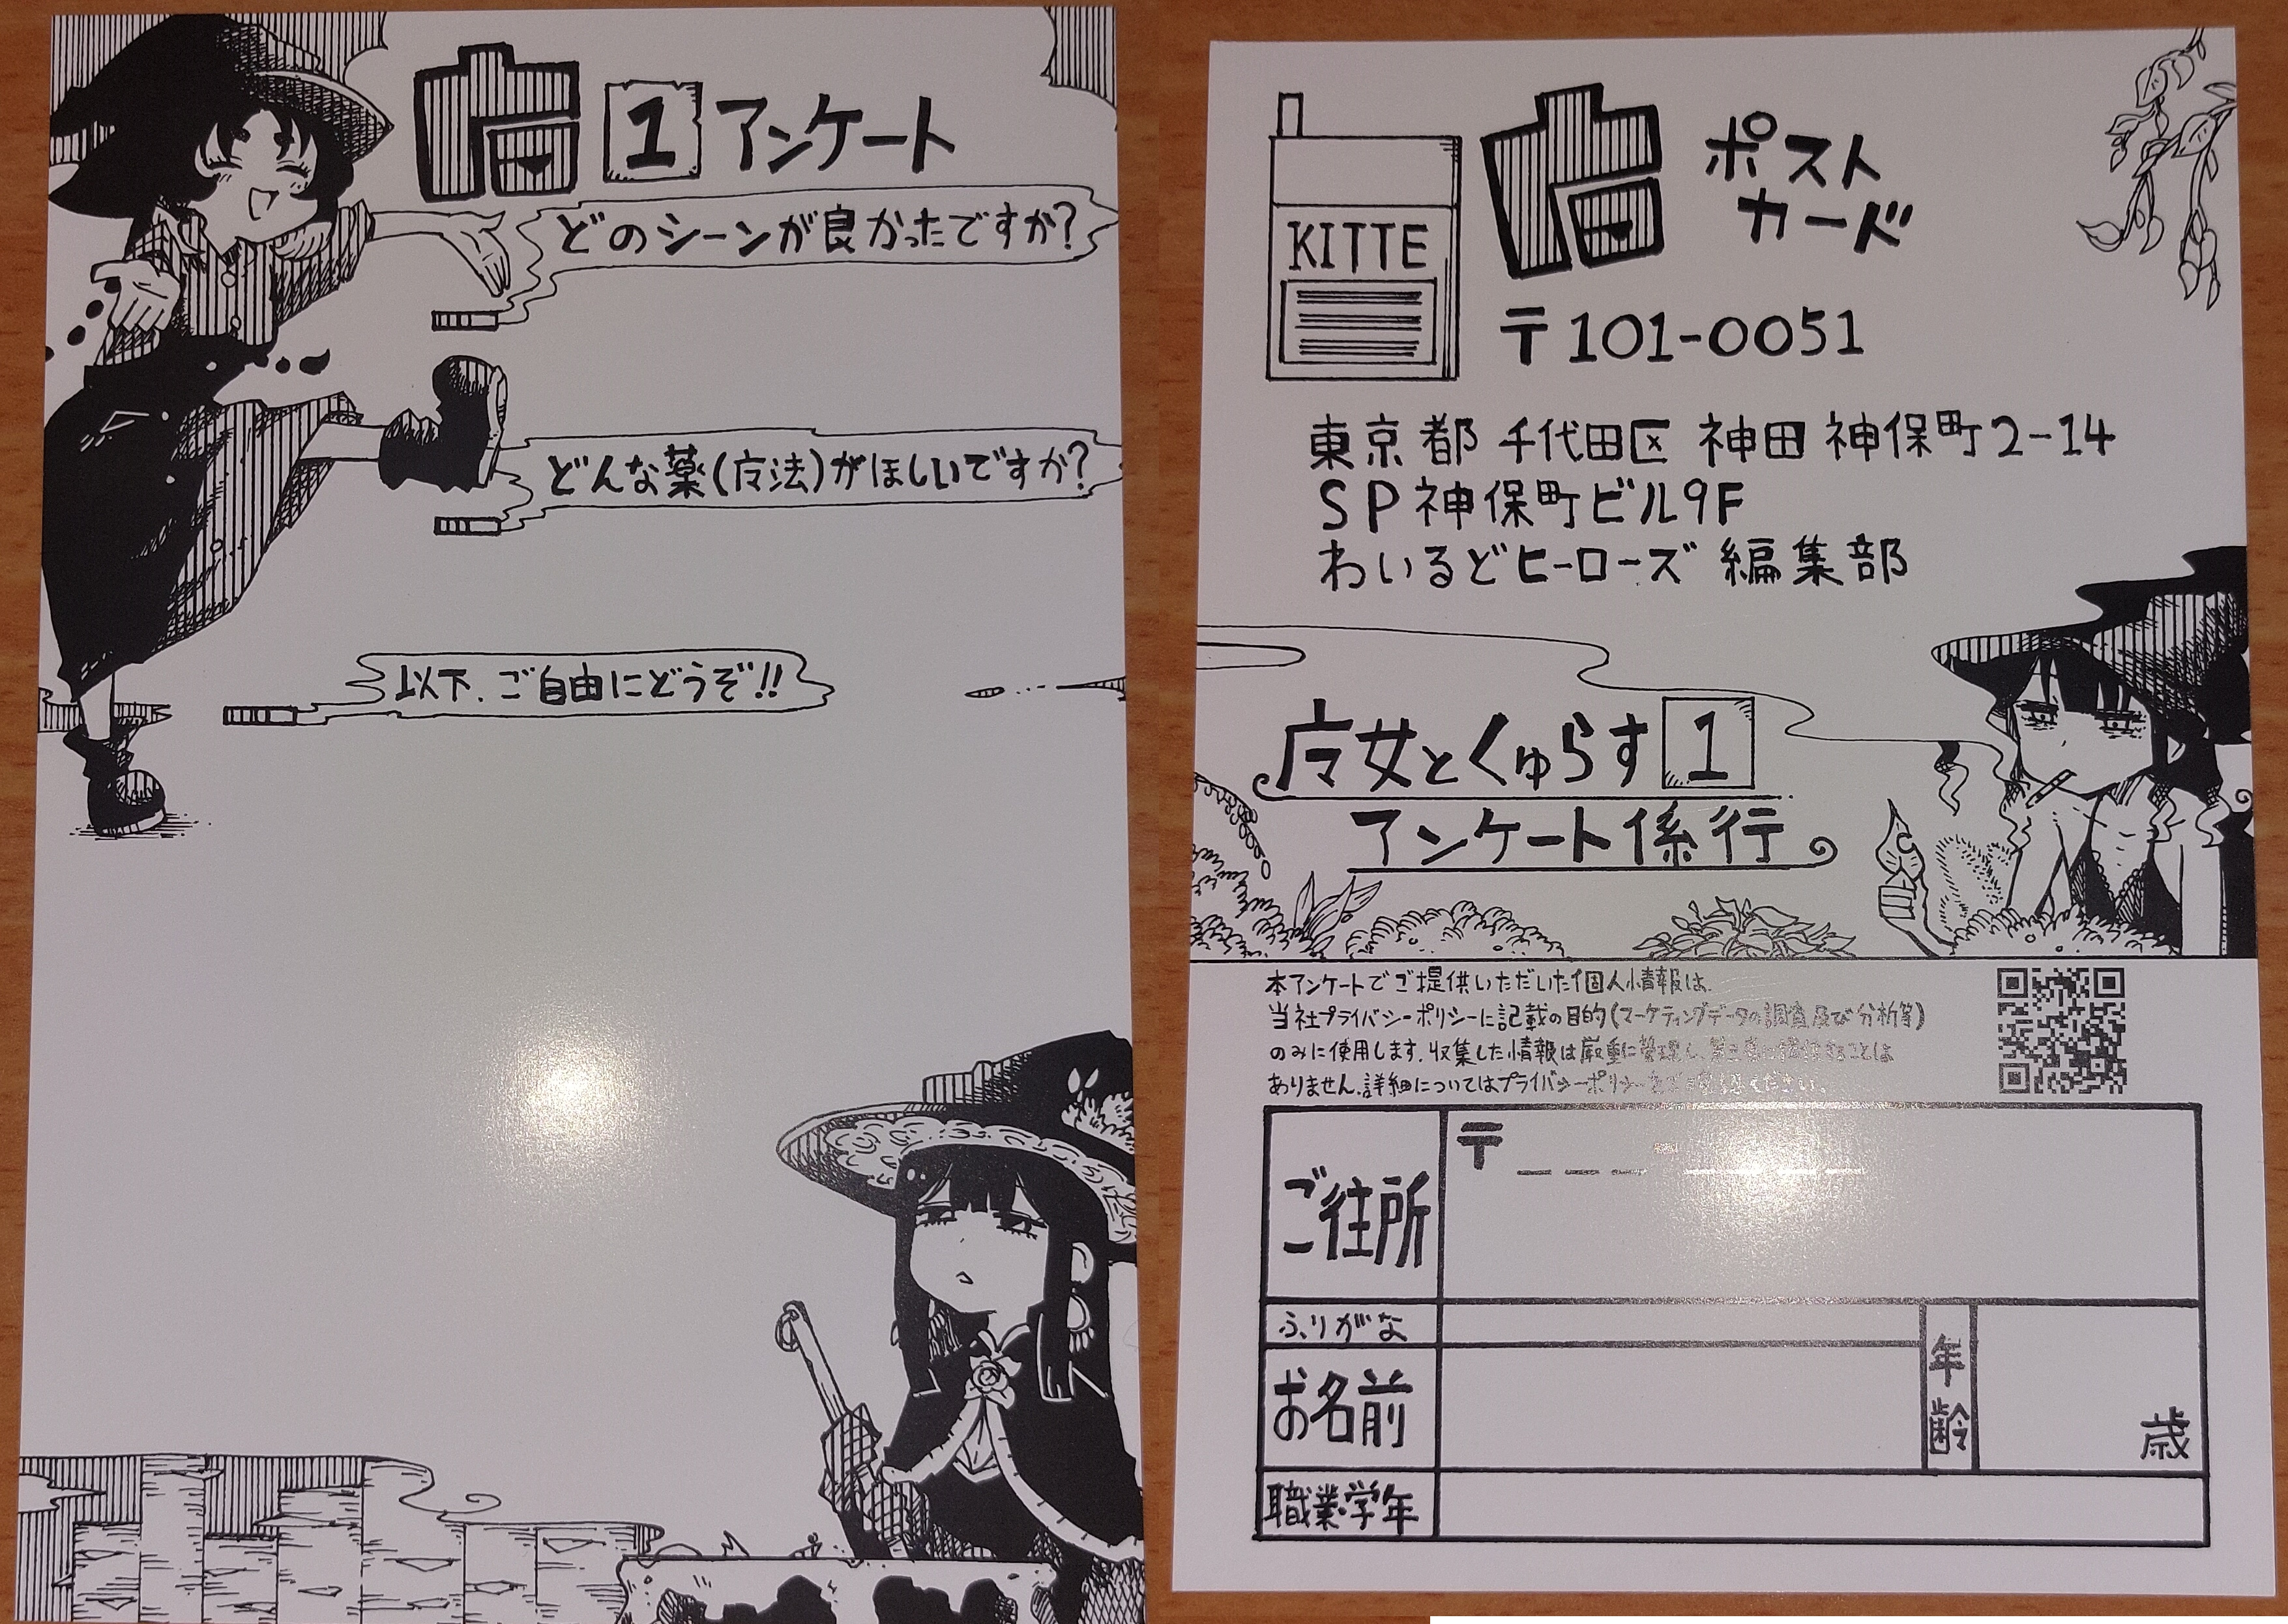 1 アンケート
どのシーンが良かったですか?
どんな薬(魔法)がほしいですか?
以下、ご自由にどうぞ!!
KITTE
ポスト
カード
〒101-0051
東京都 千代田区 神田 神保町2-14
SP神保町ビル9F
わいるどヒーローズ 編集部
魔女とくゅらす 1
アンケート係 行
本アンケートでご提供いただいた個人情報は、
当社プライバシーポリシーに記載の目的(マーケティングデータの調査及び分析等)
のみに使用します。収集した情報は厳重に管理し、第三者に提供することは
ありません。詳細についてはプライバシーポリシーをご確認ください。
ご住所
〒
ふりがな
お名前
年齢
歳
職業・学年